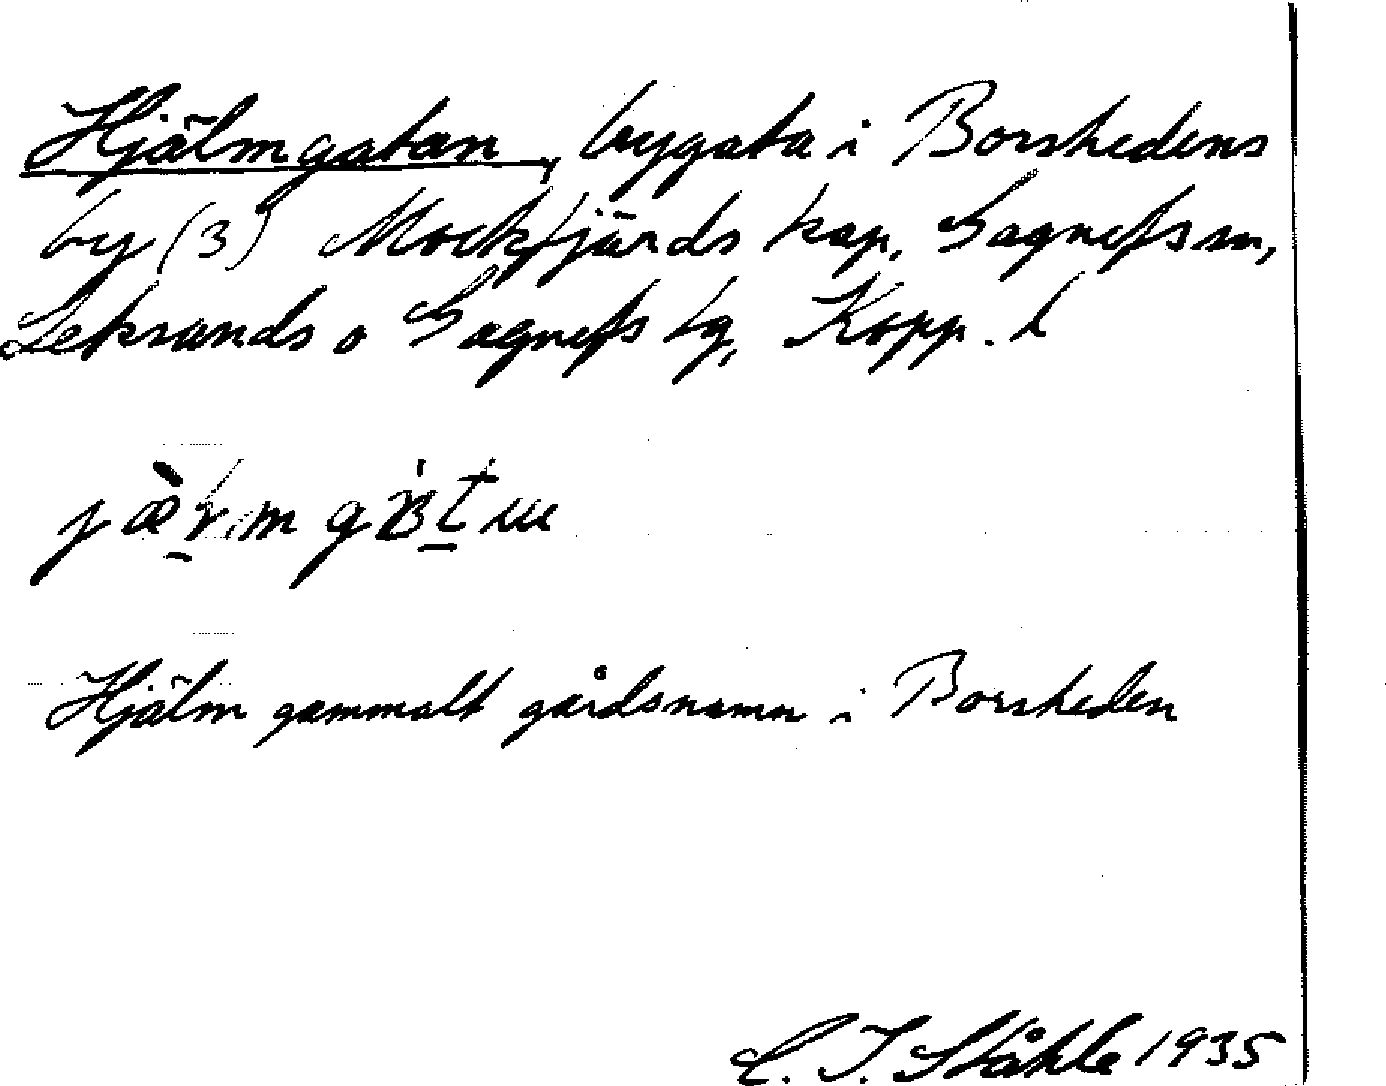 Hjälmgatan, bygata i Borshedens
by (3) Mockfjärds kap, Gagnefs sn,
Leksands o Gagnefs tg, Kopp. l
Hjälm gammalt gårdsnamn i Borsheden
C. I. Ståhle 1935